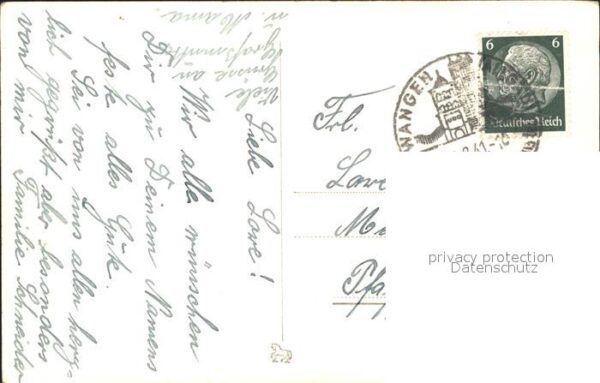 Viele
Grüsse an
Großmutter
u. Mama.
Liebe Lore!
Wir alle wünschen
Dir zu Deinem Namens
feste alles Gute.
Sei von uns allen herz-
lich gegrüßt aber besonders
von mir Familie Schneider
Frl.
Lore
WANGEN
6 6
Deutsches Reich
privacy protection
Datenschutz